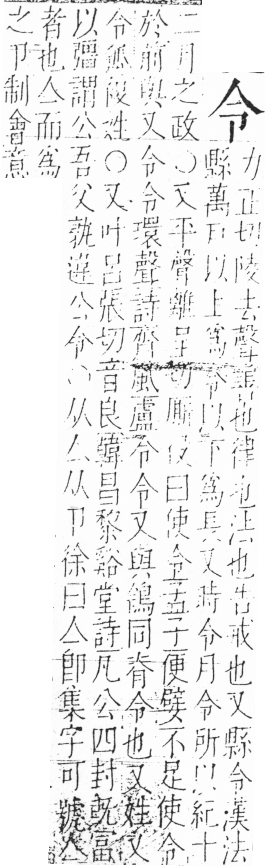 令
力正切陵去聲善也律也法也告戒也又縣令漢法
縣萬戶以上爲令以下爲長又時令月令所以紀十
二月之政○又平聲離呈切廝役曰使令孟子便嬖不足使令
於前與又令令環聲詩齊風盧令令又與鴒同脊令也又姓又
令狐複姓○又叶呂張切音良韓昌黎谿堂詩凡公四封旣富
以彊謂公吾父孰違公令○从亼从卩徐曰亼卽集字可號亼
者也亼而爲
之卩制會意